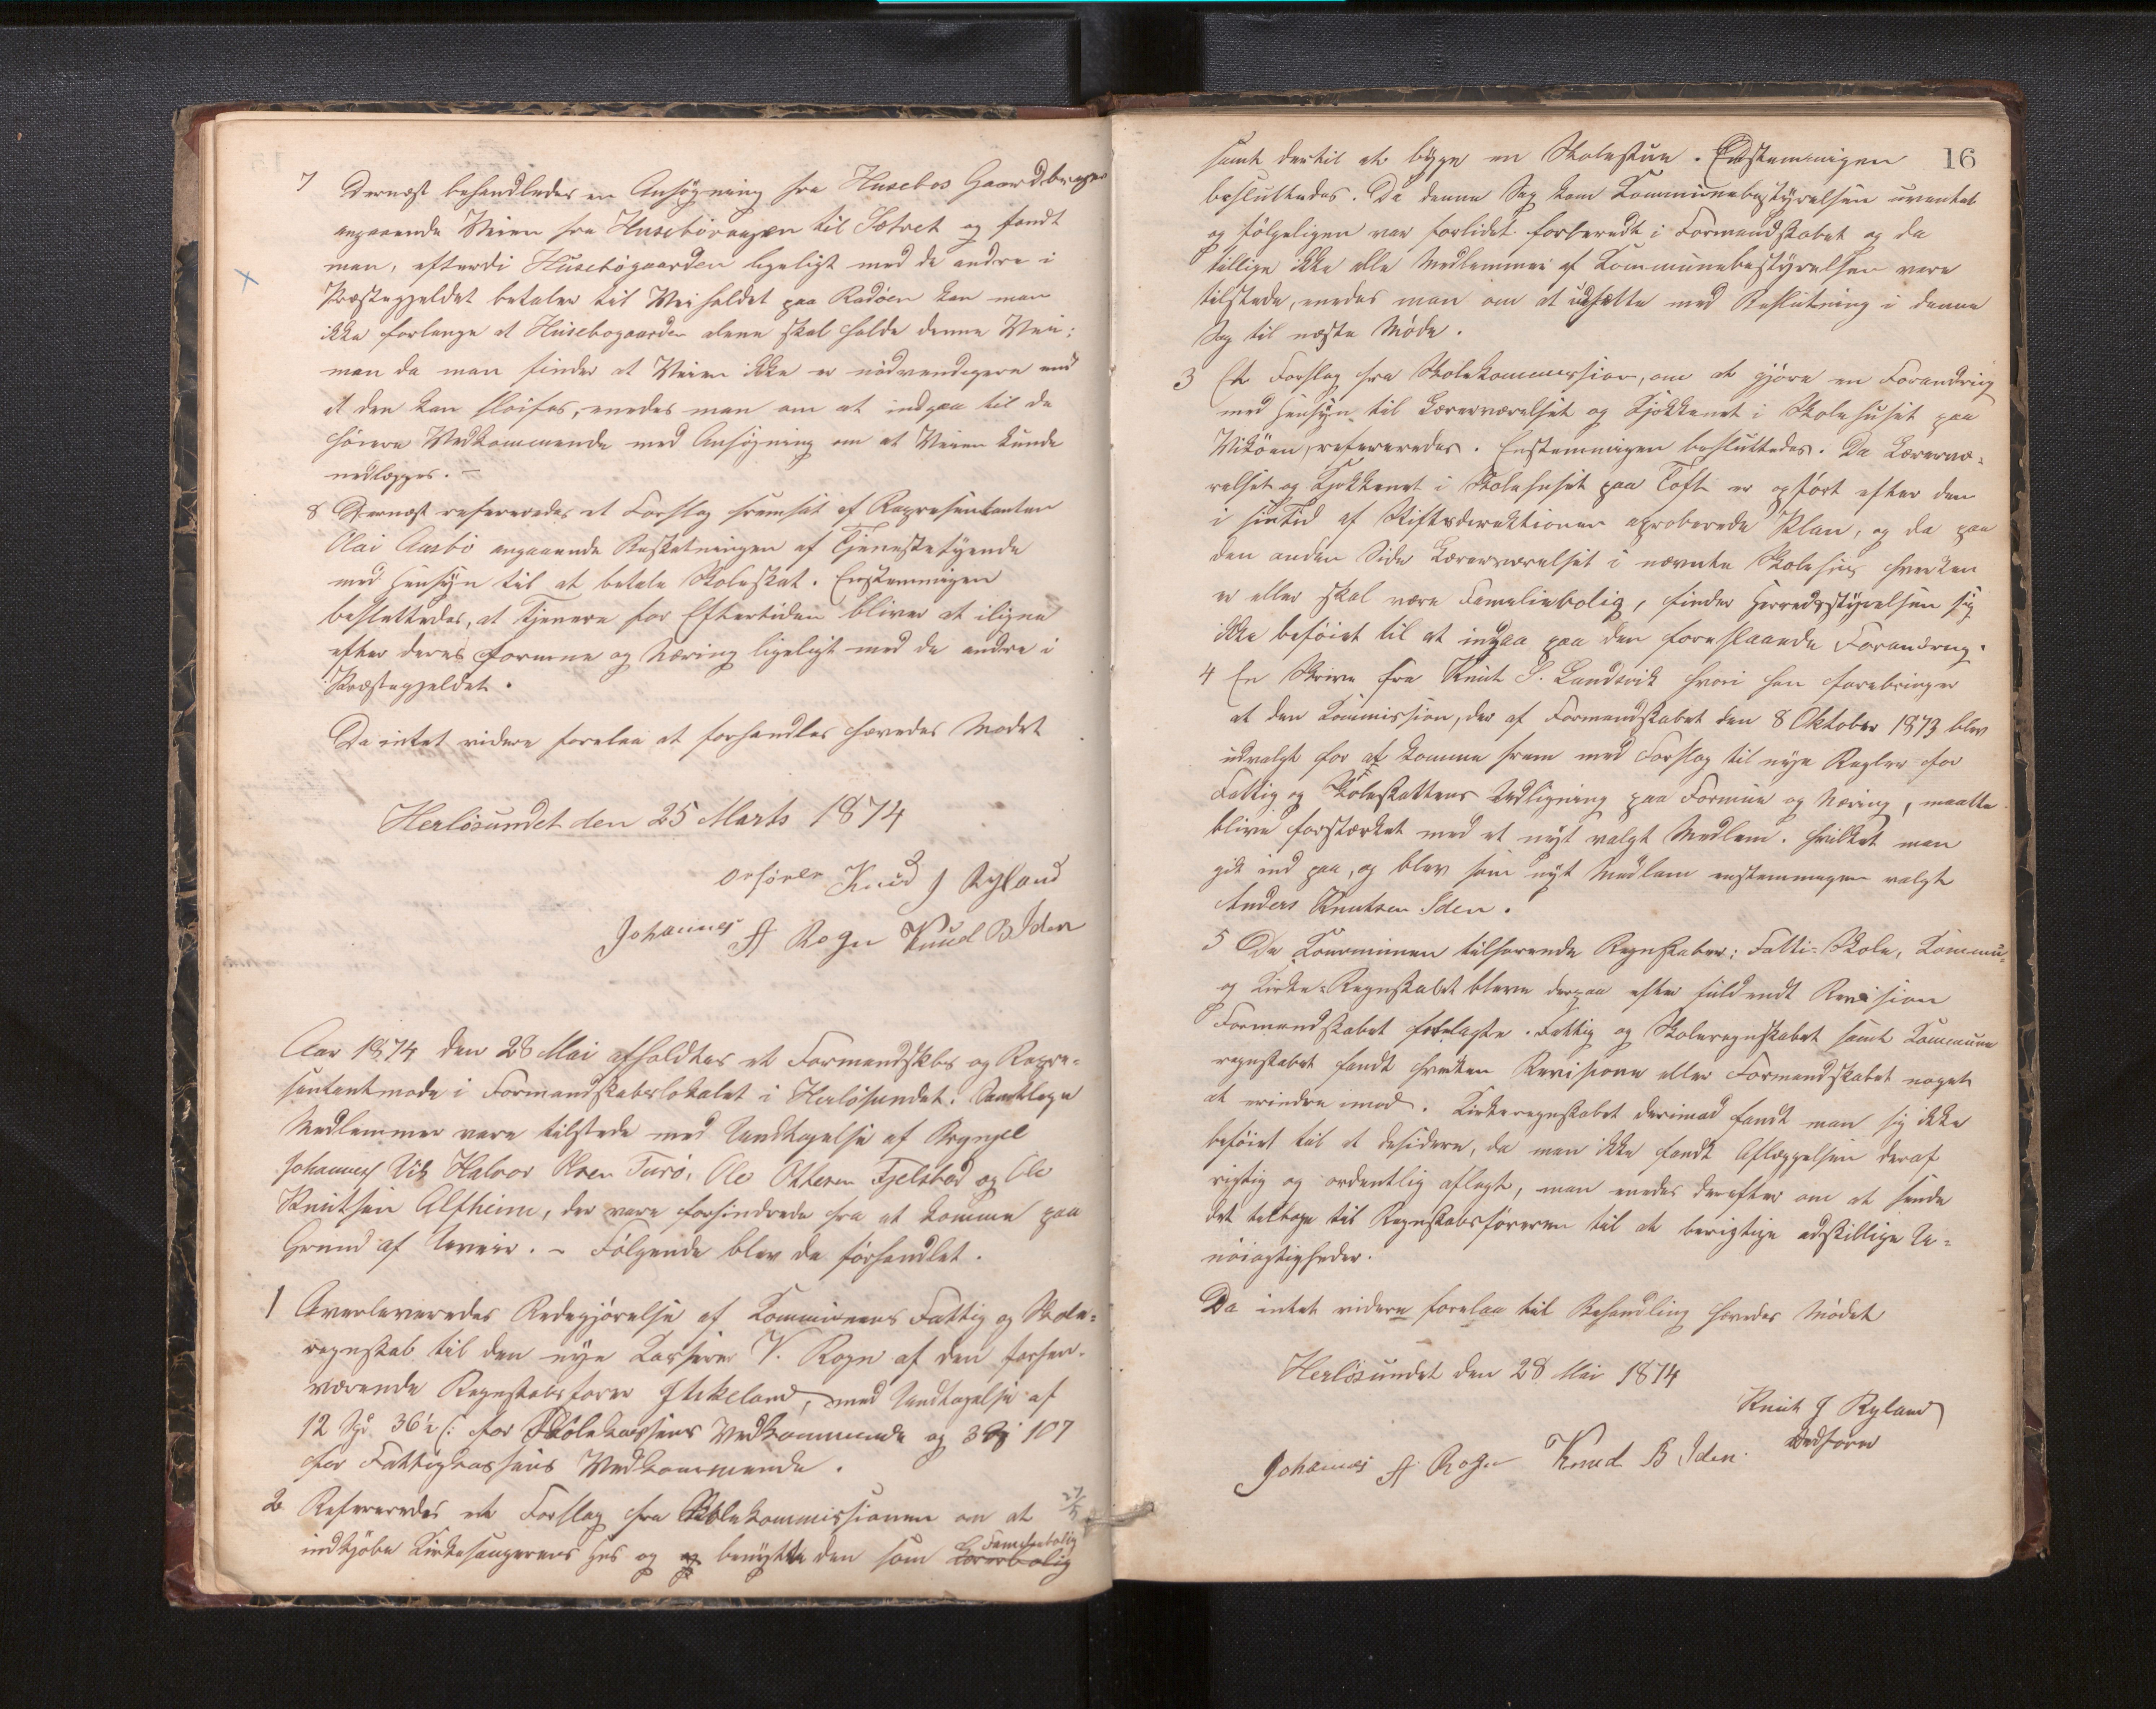 7 Dernæst behandledes en Ansøgning fra Husebøs Gaardbruger
angaaende Veien fra Husebøvaagen til Sætret og fandt
man, efterdi Husebøgaarden ligeligt med de andre i
Præstegjeldet betaler til Veiholdet paa Radøen kan man
ikke forlange at Husebøgaarden alene skal holde denne Vei:
men da man finder at Veien ikke er nødvendigere end
at den kan sløifes, enedes man om at indgaa til de
høiere Vedkommende med Ansøgning om at Veien kunde
nedlægges. –
8 Dernæst refereredes et Forslag fremsat af Repræsentanten
Olai Austbø angaaende Beskatningen af Tjenestetyende
med Hensyn til at betale Skoleskat. Enstemmigen
besluttedes, at Tjenere for Eftertiden bliver at iligne
efter deres Formue og Næring ligeligt med de andre i
Præstegjeldet.
Da intet videre forelaa at forhandles hævedes Mødet
Herløsundet den 25 Marts 1874
Orfører Knud J Ryland
Johannes A Rogn Knud B Iden
Aar 1874 den 28 Mai afholdtes et Formandskbs og Repræ-
sentantmøde i Formandskabslokalet i Herløsundet. Samtlige
Medlemmer vare tilstede med Undtagelse af Brynjel
Johannes Vik Halvor Olsen Turø, Ole Ottesen Fjelstad og Ole
Knutsen Alfheim, der vare forhindrede fra at komme paa
Grund af Uveir. – Følgende blev da forhandlet.
1 Overleveredes Redegjørelse af Kommunens Fattig og Skole-
regnskab til den nye Kasserer V. Rogn af den forhen-
værende Regnskabsfører J Askeland, med Undtagelse af
12 Spd 36½ s: for Skolekassens Vedkommende og 3 Spd 107
for Fattigkassens Vedkommende.
2 Refereredes et Forslag fra Skolekommissionen om at 27/5
indkjøbe Kirkesangerens Hus og benytte den som Lærerbolig Familiebolig
16
samt dertil at bygge en Skolestue. Enstemmigen
besluttedes. Da denne Sag kom Kommunebestyrelsen uventet
og følgeligen var forlidet forberedt i Formandskabet og da
tillige ikke alle Medlemmer af Kommunebestyrelsen vare
tilstede, enedes man om at udsætte med Beslutning i denne
Sag til næste Møde.
3 Et Forslag fra Skolekommission, om at gjøre en Forandring
med Hensyn til Lærerværelset og Kjøkkenet i Skolehuset paa
Vikøen, refereredes. Enstemmigen besluttedes. Da Lærervæ-
relset og Kjøkkenet i Skolehuset paa Toft er opført efter den
i sin Tid af Stiftsdirektionen aproberede Plan, og da paa
den anden Side Lærerværelset i nævnte Skolehus hverken
er eller skal være Familiebolig, finder Herredsstyrelsen sig
ikke beføiet til at indgaa paa den foreslaaede Forandring.
4 En Skrive fra Knut S. Landsvik hvori han forebringer
at den Kommission, der af Formandskabet den 8 Oktober 1873 blev
udvalgt for at komme frem med Forslag til nye Regler for
Fattig og Skoleskattens Udligning paa Formue og Næring, maatte
blive forstærket med et nyt valgt Medlem. Hvilket man
gik ind paa, og blev som nyt Medlem enstemmigen valgt
Anders Knutsen Iden.
5 De Kommunen tilhørende Regnskaber: Fatti- Skole, Kommu-
og Kirke-Regnskabet bleve derpaa efter fuldendt Revision
Formandskabet forelagte. Fattig og Skoleregnskabet samt Kommune
regnskabet fandt hverken Revisorne eller Formandskabet noget
at erindre imod. Kirkeregnskabet derimod fandt man sig ikke
beføiet til at desidere, da man ikke fandt Aflæggelsen deraf
rigtig og ordentlig aflagt, man enedes derefter om at sende
det tilbage til Regnskabsføreren til at berigtige adskillige U-
nøiagtigheder.
Da intet videre forelaa til Behandling hævedes Mødet
Herløsundet den 28 Mai 1874
Knut J Ryland
Ordfører
Johannes A Rogn Knud B Iden.